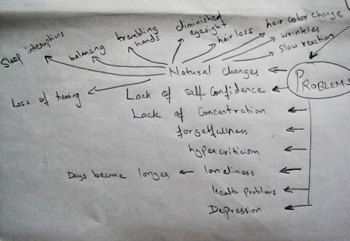 Sleep interuptions
balancing
trembling
hands
diminished
eyesight
hairloss
hair color change
wrinkles
slow reaction
Loss of hearing
Natural Changes
PROBLEMS
Lack of self Confidence
Lack of Concentration
forgetfullness
hypercriticism
Days become longer ← loneliness
Health problems
Depression